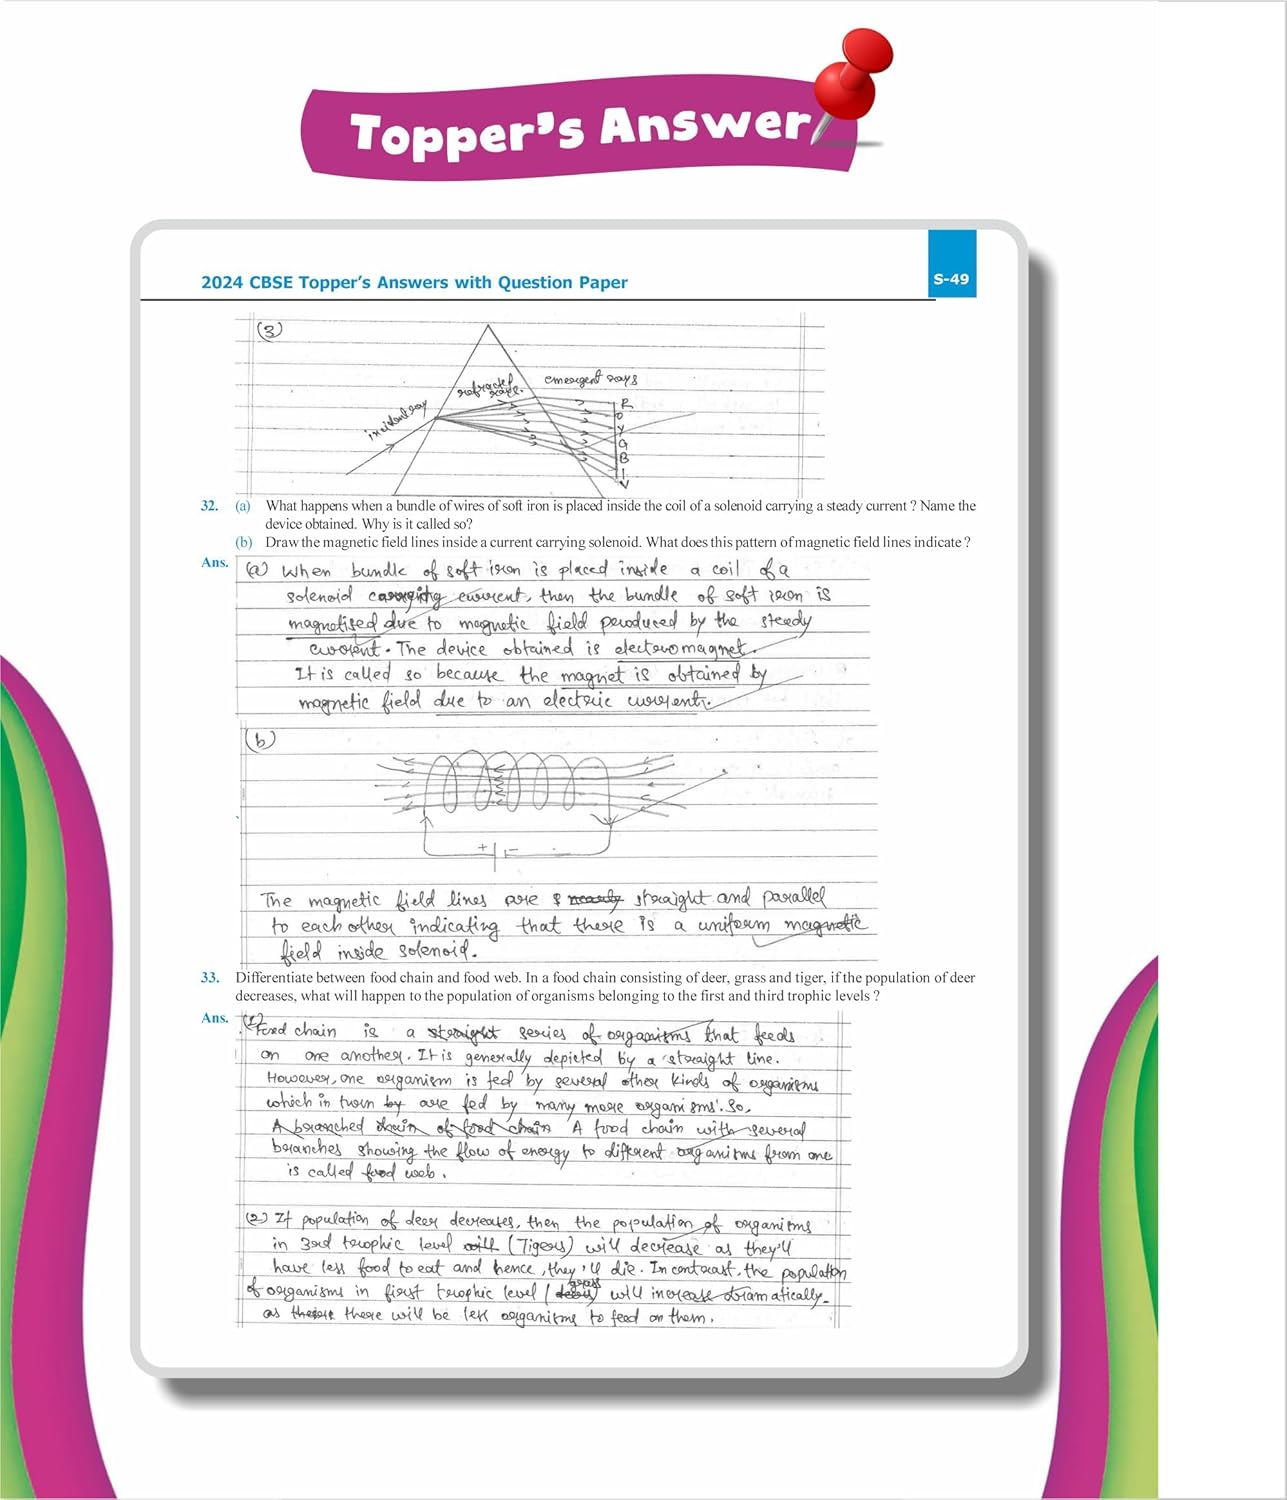 Topper's Answer
2024 CBSE Topper's Answers with Question Paper
S-49
(3)
incident ray
refracted rays.
emergent rays
R
O
Y
G
B
I
V
32. (a) What happens when a bundle of wires of soft iron is placed inside the coil of a solenoid carrying a steady current ? Name the
device obtained. Why is it called so?
(b) Draw the magnetic field lines inside a current carrying solenoid. What does this pattern of magnetic field lines indicate ?
Ans. (a) When bundle of soft iron is placed inside a coil of a
solenoid carrying current, then the bundle of soft iron is
magnetised due to magnetic field produced by the steady
current. The device obtained is electromagnet.
It is called so because the magnet is obtained by
magnetic field due to an electric current.
(b)
+ -
The magnetic field lines are nearly straight and parallel
to each other indicating that there is a uniform magnetic
field inside solenoid.
33. Differentiate between food chain and food web. In a food chain consisting of deer, grass and tiger, if the population of deer
decreases, what will happen to the population of organisms belonging to the first and third trophic levels ?
Ans. (1)
Food chain is a straight series of organisms that feeds
on one another. It is generally depicted by a straight line.
However, one organism is fed by several other kinds of organisms
which in turn by are fed by many more organisms. So,
A branched chain of food chain A food chain with several
branches showing the flow of energy to different organisms from one
is called food web.
(2) If population of deer decreases, then the population of organisms
in 3rd trophic level will (Tigers) will decrease as they'll
have less food to eat and hence, they'll die. In contrast, the population
of organisms in first trophic level (grass) will increase dramatically
as there will be less organisms to feed on them.